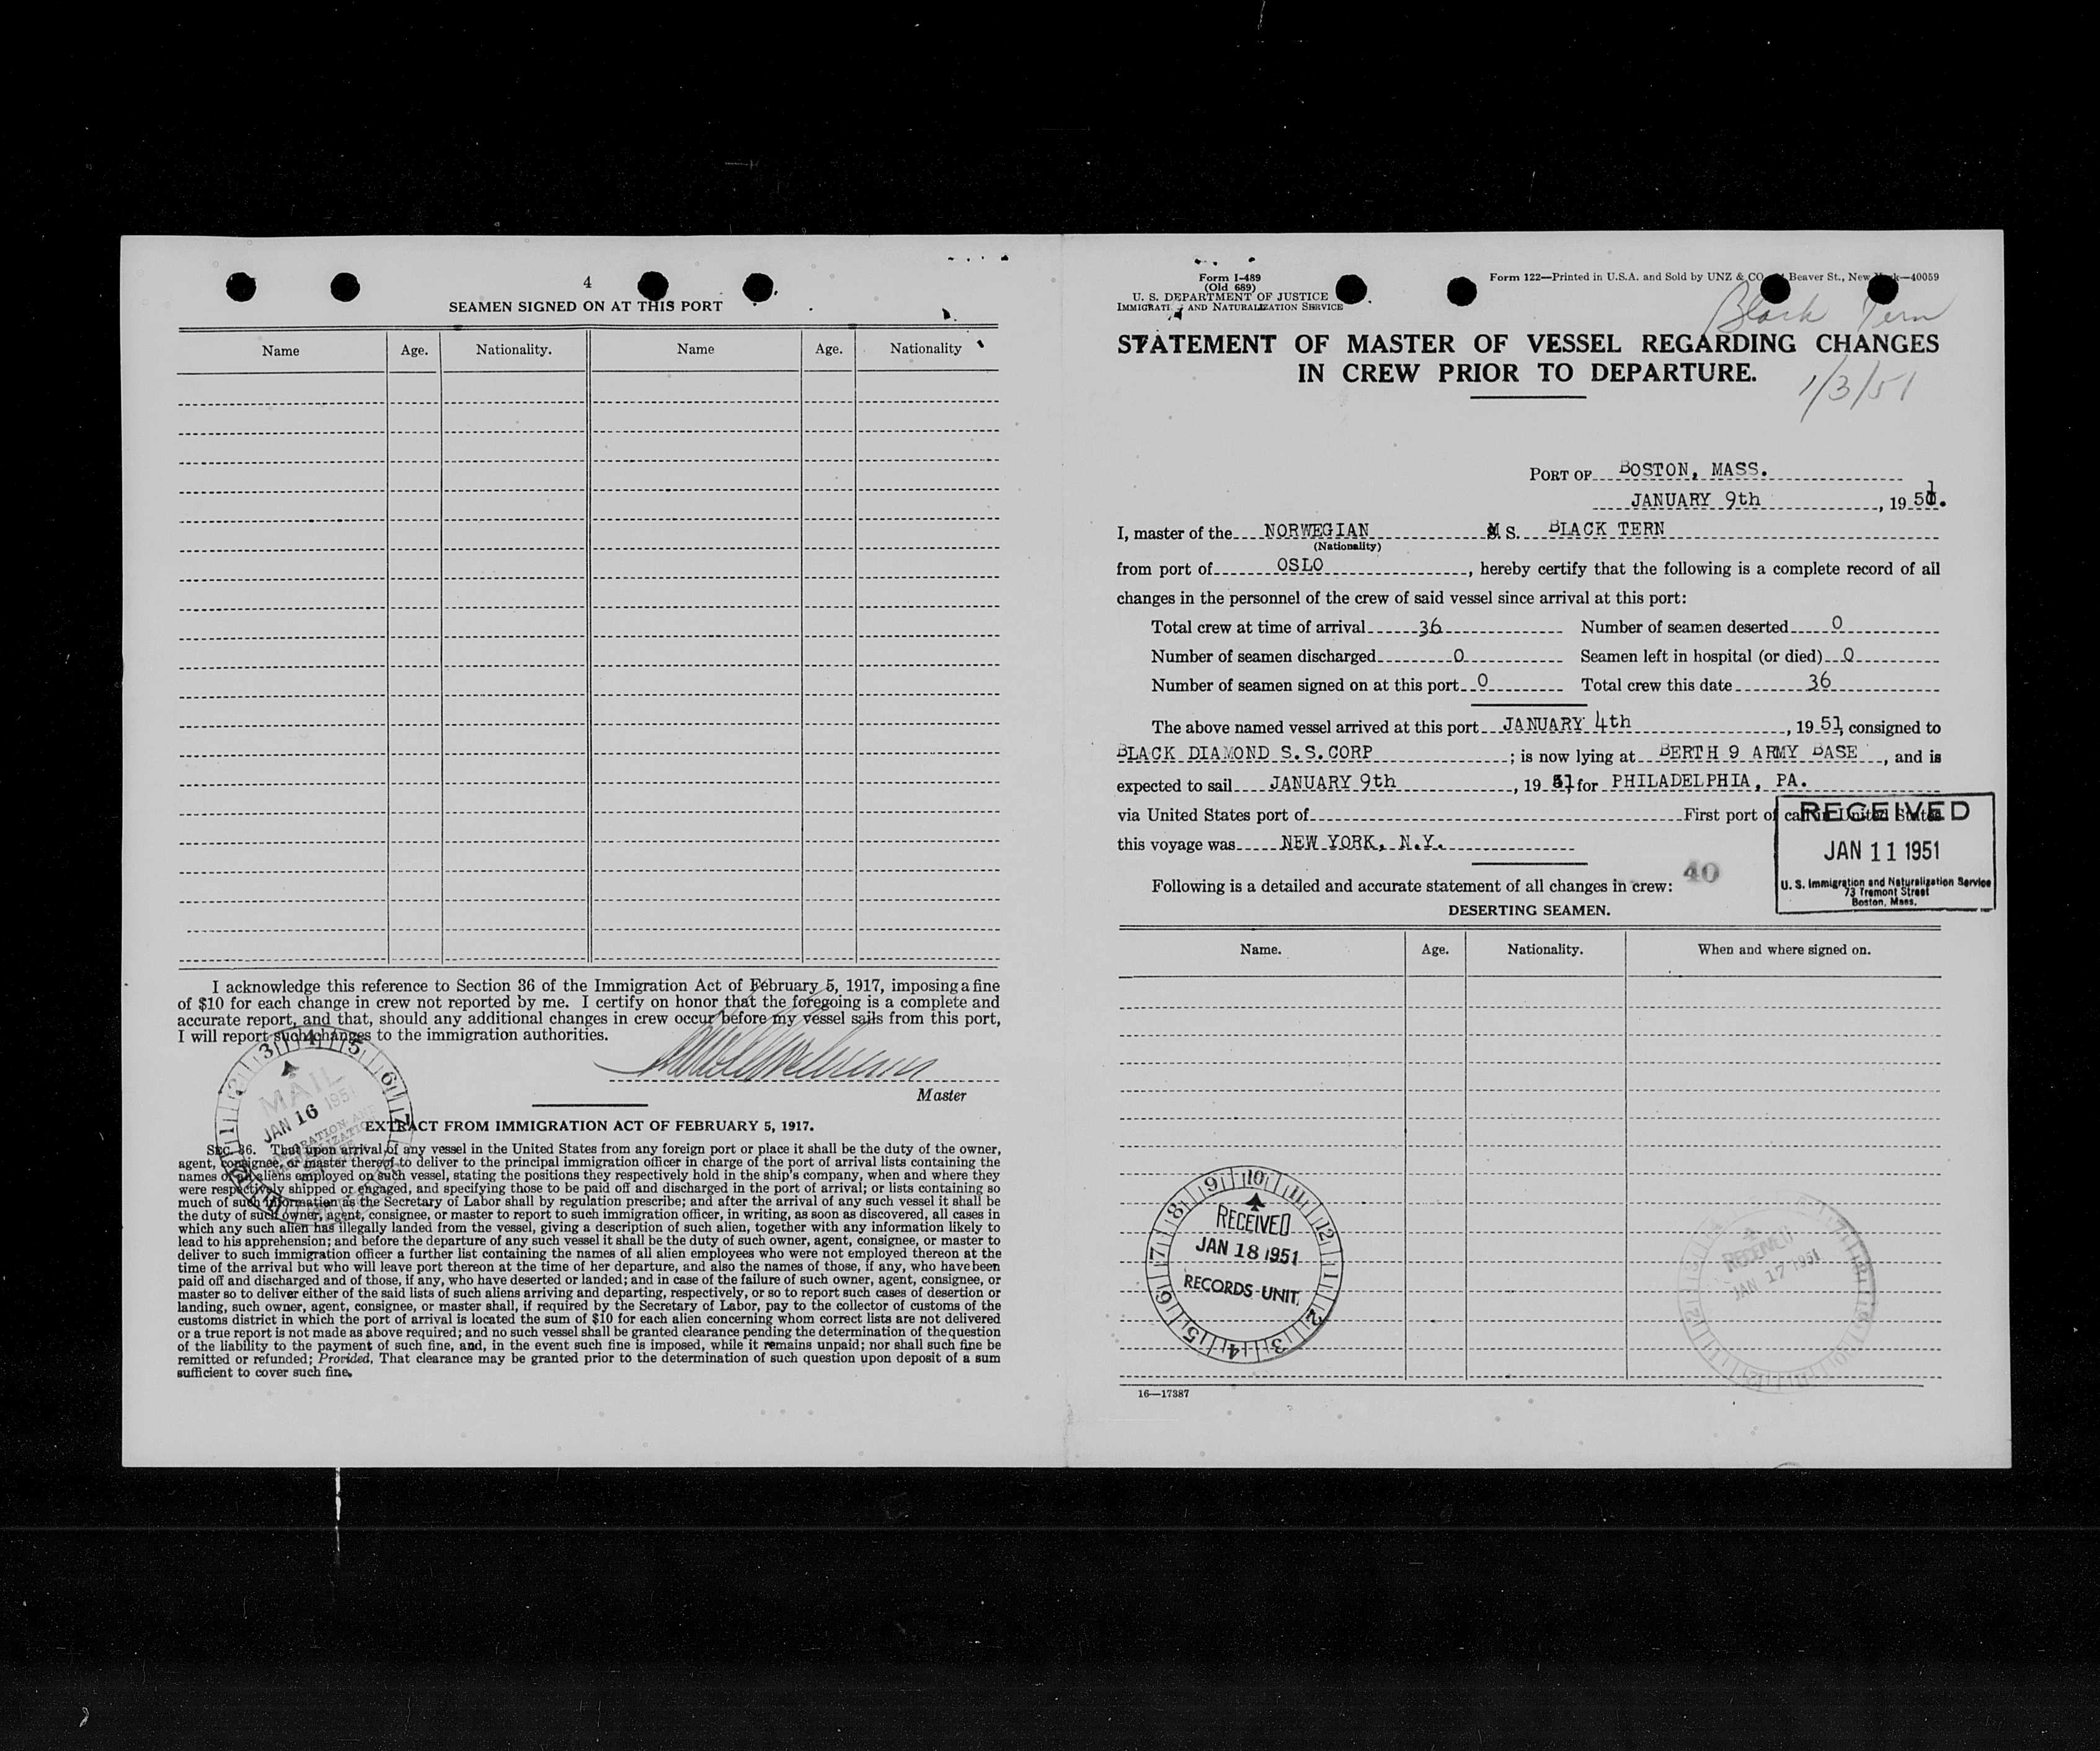 4
SEAMEN SIGNED ON AT THIS PORT
Name Age. Nationality. Name Age. Nationality
I acknowledge this reference to Section 36 of the Immigration Act of February 5, 1917, imposing a fine
of $10 for each change in crew not reported by me. I certify on honor that the foregoing is a complete and
accurate report, and that, should any additional changes in crew occur before my vessel sails from this port,
I will report such changes to the immigration authorities.
Master
MAIL
JAN 16 1951
EXTRACT FROM IMMIGRATION ACT OF FEBRUARY 5, 1917.
SEC. 36. That upon arrival of any vessel in the United States from any foreign port or place it shall be the duty of the owner,
agent, consignee, or master thereof to deliver to the principal immigration officer in charge of the port of arrival lists containing the
names of all aliens employed on such vessel, stating the positions they respectively hold in the ship's company, when and where they
were respectively shipped or engaged, and specifying those to be paid off and discharged in the port of arrival; or lists containing so
much of such information as the Secretary of Labor shall by regulation prescribe; and after the arrival of any such vessel it shall be
the duty of such owner, agent, consignee, or master to report to such immigration officer, in writing, as soon as discovered, all cases in
which any such alien has illegally landed from the vessel, giving a description of such alien, together with any information likely to
lead to his apprehension; and before the departure of any such vessel it shall be the duty of such owner, agent, consignee, or master to
deliver to such immigration officer a further list containing the names of all alien employees who were not employed thereon at the
time of the arrival but who will leave port thereon at the time of her departure, and also the names of those, if any, who have been
paid off and discharged and of those, if any, who have deserted or landed; and in case of the failure of such owner, agent, consignee, or
master so to deliver either of the said lists of such aliens arriving and departing, respectively, or so to report such cases of desertion or
landing, such owner, agent, consignee, or master shall, if required by the Secretary of Labor, pay to the collector of customs of the
customs district in which the port of arrival is located the sum of $10 for each alien concerning whom correct lists are not delivered
or a true report is not made as above required; and no such vessel shall be granted clearance pending the determination of the question
of the liability to the payment of such fine, and, in the event such fine is imposed, while it remains unpaid; nor shall such fine be
remitted or refunded; Provided, That clearance may be granted prior to the determination of such question upon deposit of a sum
sufficient to cover such fine.
Form I-489
(Old 689)
U. S. DEPARTMENT OF JUSTICE
IMMIGRATION AND NATURALIZATION SERVICE
Form 122—Printed in U.S.A. and Sold by UNZ & CO. Beaver St., New York—40059
Black Tern
STATEMENT OF MASTER OF VESSEL REGARDING CHANGES
IN CREW PRIOR TO DEPARTURE.
1/3/51
PORT OF BOSTON, MASS.
JANUARY 9th, 1951.
I, master of the NORWEGIAN M S. BLACK TERN
(Nationality)
from port of OSLO, hereby certify that the following is a complete record of all
changes in the personnel of the crew of said vessel since arrival at this port:
Total crew at time of arrival 36 Number of seamen deserted 0
Number of seamen discharged 0 Seamen left in hospital (or died) 0
Number of seamen signed on at this port 0 Total crew this date 36
The above named vessel arrived at this port JANUARY 4th, 1951, consigned to
BLACK DIAMOND S.S.CORP; is now lying at BERTH 9 ARMY BASE, and is
expected to sail JANUARY 9th, 1951 for PHILADELPHIA, PA.
via United States port of First port of call in United States
this voyage was NEW YORK, N.Y.
RECEIVED
JAN 11 1951
U. S. Immigration and Naturalization Service
73 Tremont Street
Boston, Mass.
Following is a detailed and accurate statement of all changes in crew: 40
DESERTING SEAMEN.
Name. Age. Nationality. When and where signed on.
9 10 11 12 1 2 3 4 5 6 7 8
RECEIVED
JAN 18 1951
RECORDS UNIT
RECEIVED
JAN 17 1951
16—17387